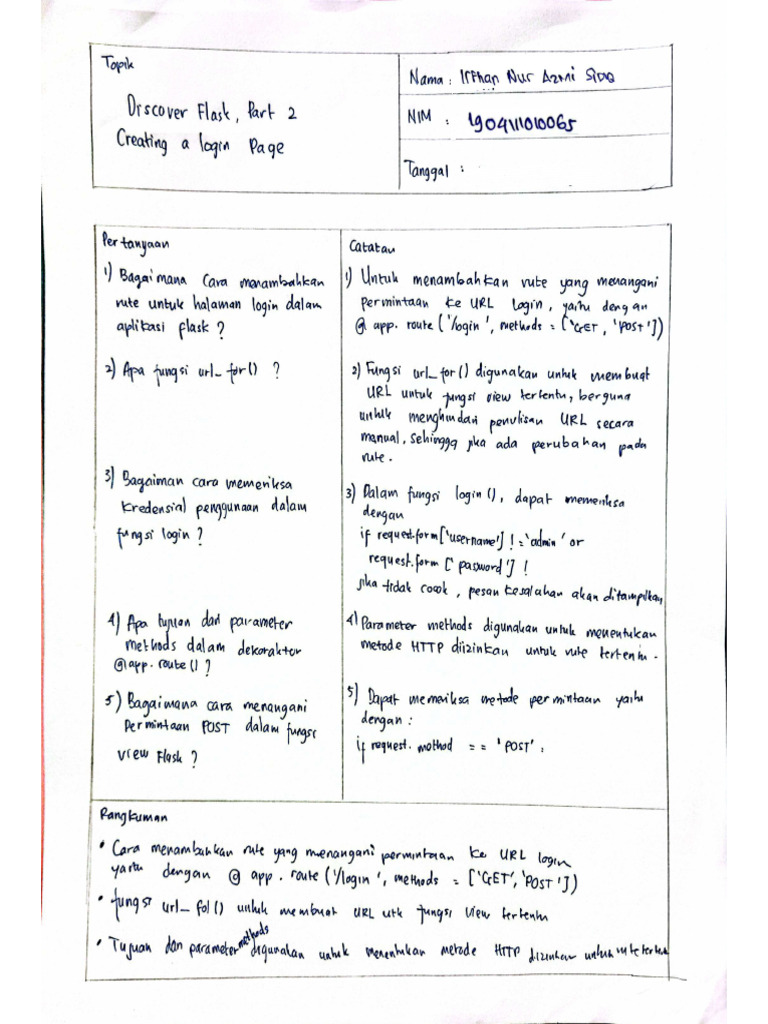 Topik
Discover Flask, Part 2
Creating a login Page
Nama : Irfhan Nur Azmi
NIM : 190411010065
Tanggal :
Pertanyaan
1) Bagaimana cara menambahkan
rute untuk halaman login dalam
aplikasi flask ?
2) Apa fungsi url_for() ?
3) Bagaiman cara memeriksa
kredensial penggunaan dalam
fungsi login ?
4) Apa tujuan dari parameter
methods dalam dekoraktor
@app.route() ?
5) Bagaimana cara menangani
Permintaan POST dalam fungsi
view Flask ?
Catatan
1) Untuk menambahkan rute yang menangani
permintaan ke URL login, yaitu dengan
@ app. route ('/login', methods = ['GET, 'POST'])
2) Fungsi url_for() digunakan untuk membuat
URL untuk fungsi view tertentu, berguna
untuk menghindari penulisan URL secara
manual, sehingga jika ada perubahan pada
rute.
3) Dalam fungsi login(), dapat memeriksa
dengan
if request.form['username'] != 'admin' or
request.form ['password'] !
jika tidak cocok, pesan kesalahan akan ditampilkan
4) Parameter methods digunakan untuk menentukan
metode HTTP diizinkan untuk rute tertentu.
5) Dapat memeriksa metode permintaan yaitu
dengan :
if request. method == 'POST' :
Rangkuman
• Cara menambahkan rute yang menangani permintaan ke URL login
yaitu dengan @ app. route ('/login', methods = ['GET', 'POST'])
• fungsi url_fol() untuk membuat URL utk fungsi view tertentu
• Tujuan dari parameter methods digunakan untuk menentukan metode HTTP diizinkan untuk rute tertentu